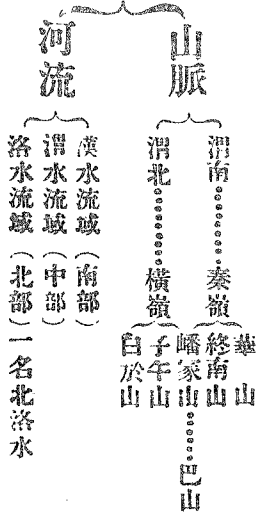 山脈
渭南……秦嶺
華山
終南山
嶓冢山……巴山
渭北……橫嶺
子午山
白於山
河流
漢水流域(南部)
渭水流域(中部)
洛水流域(北部)一名北洛水